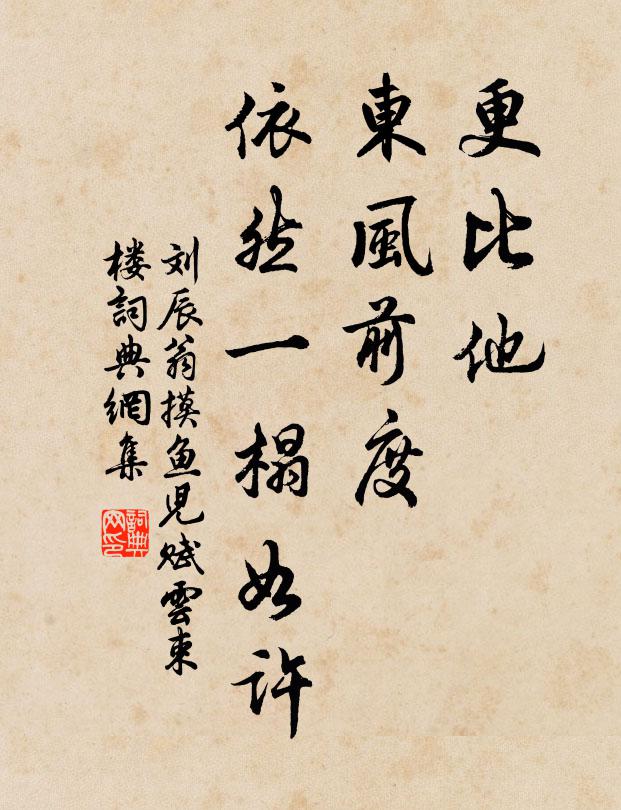 更比他
東風前度
依然一榻如許
刘辰翁摸鱼児赋雲東
楼詞典網集
詞典网印